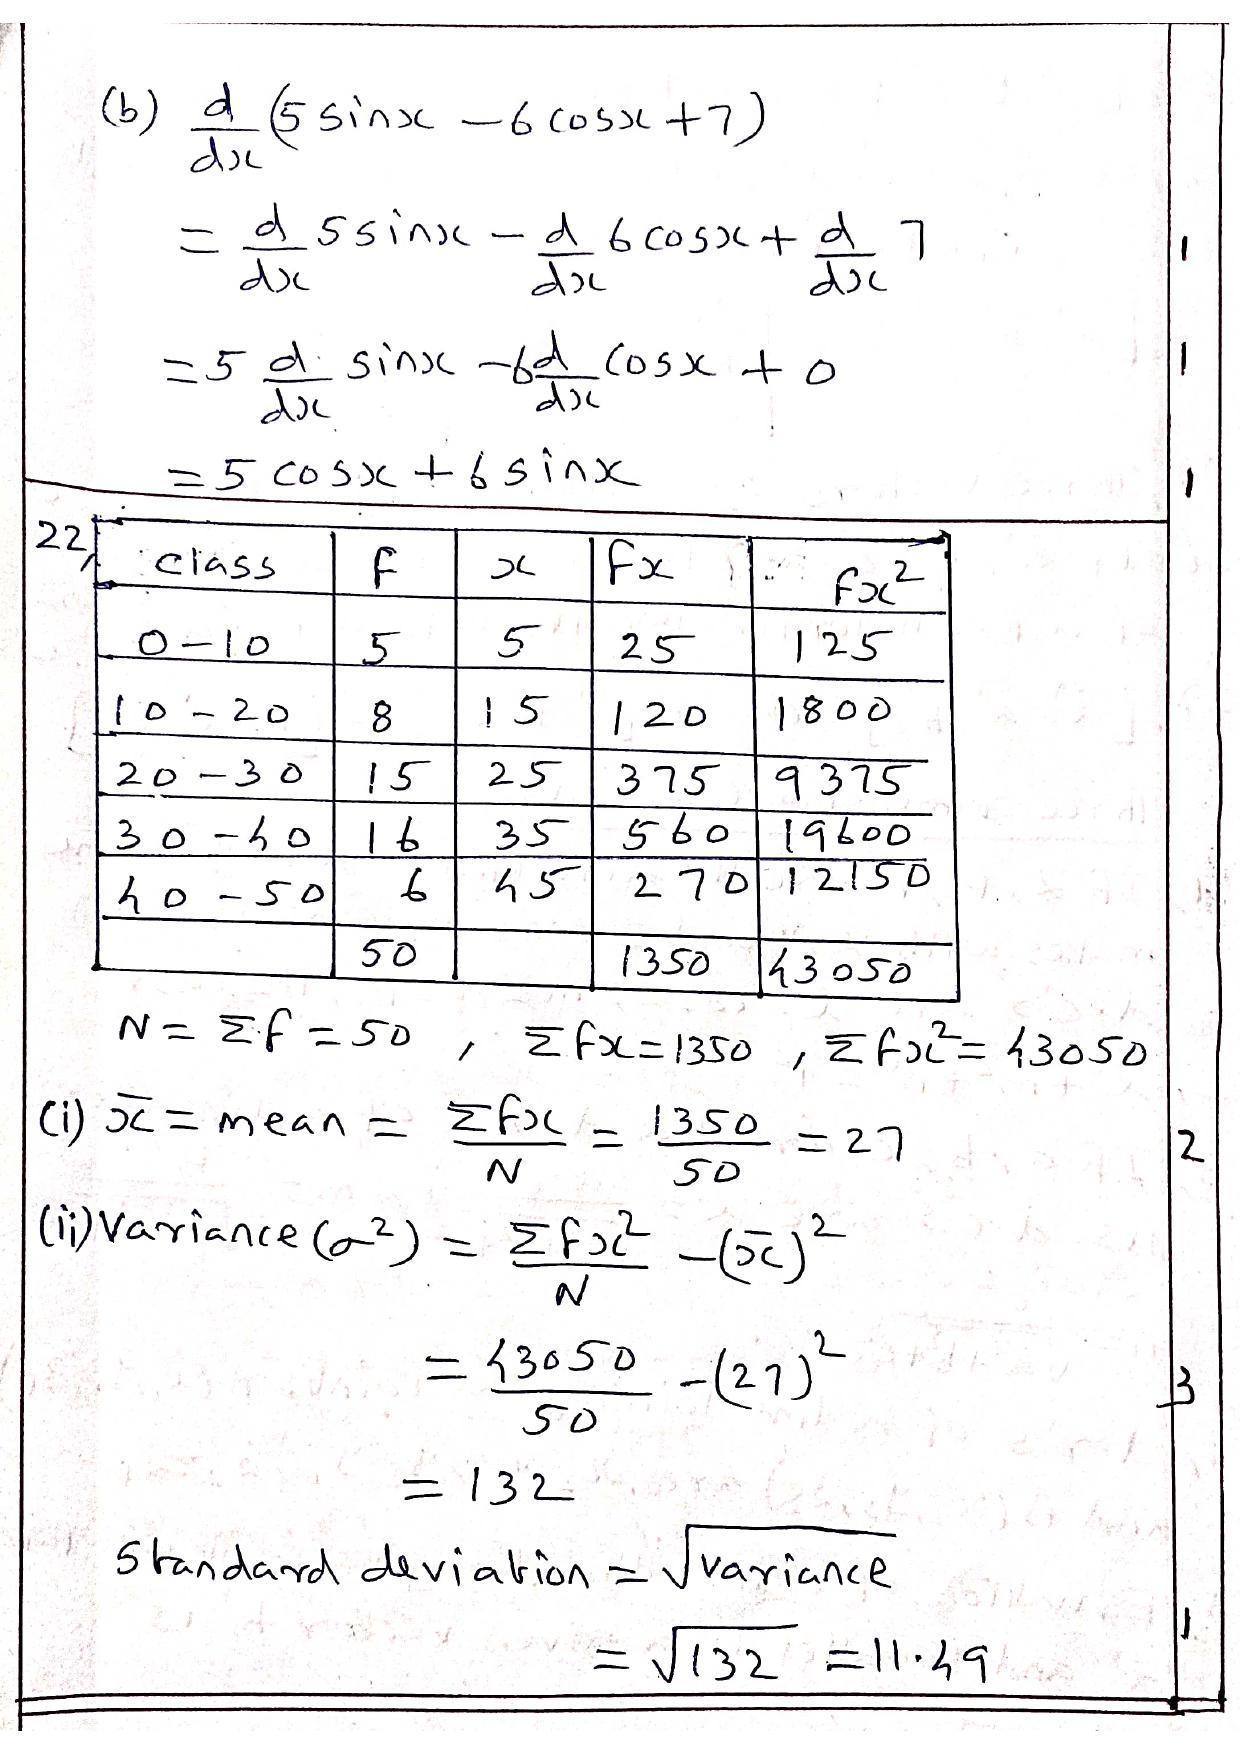 (b) d/dx (5 sinx - 6 cosx + 7)
= d/dx 5 sinx - d/dx 6 cosx + d/dx 7 1
= 5 d/dx sinx - 6 d/dx cosx + 0 1
= 5 cosx + 6 sinx 1
22,
class f x fx fx²
0-10 5 5 25 125
10-20 8 15 120 1800
20-30 15 25 375 9375
30-40 16 35 560 19600
40-50 6 45 270 12150
50 1350 43050
N = Σf = 50 , Σfx = 1350 , Σfx² = 43050
(i) x̄ = mean = Σfx/N = 1350/50 = 27 2
(ii) Variance (σ²) = Σfx²/N - (x̄)²
= 43050/50 - (27)² 3
= 132
Standard deviation = √variance
= √132 = 11.49 1